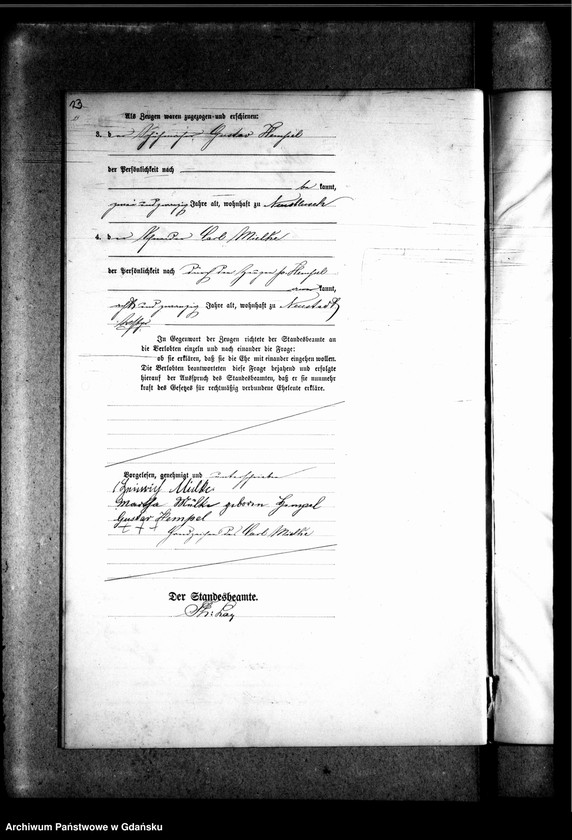 23
Als Zeugen waren zugezogen und erschienen:
3. der Gustav Hempel
der Persönlichkeit nach
be kannt,
zwei und zwanzig Jahre alt, wohnhaft zu
4. der Carl Mielke
der Persönlichkeit nach durch den Zeugen Hempel
kannt,
acht und zwanzig Jahre alt, wohnhaft zu Neustadt
In Gegenwart der Zeugen richtete der Standesbeamte an
die Verlobten einzeln und nach einander die Frage:
ob sie erklären, daß sie die Ehe mit einander eingehen wollen.
Die Verlobten beantworteten diese Frage bejahend und erfolgte
hierauf der Ausspruch des Standesbeamten, daß er sie nunmehr
kraft des Gesetzes für rechtmäßig verbundene Eheleute erkläre.
Vorgelesen, genehmigt und unterschrieben
Heinrich Mielke
Martha Mielke geboren Hempel
Gustav Hempel
+ + + Handzeichen des Carl Mielke
Der Standesbeamte.
Archiwum Państwowe w Gdańsku